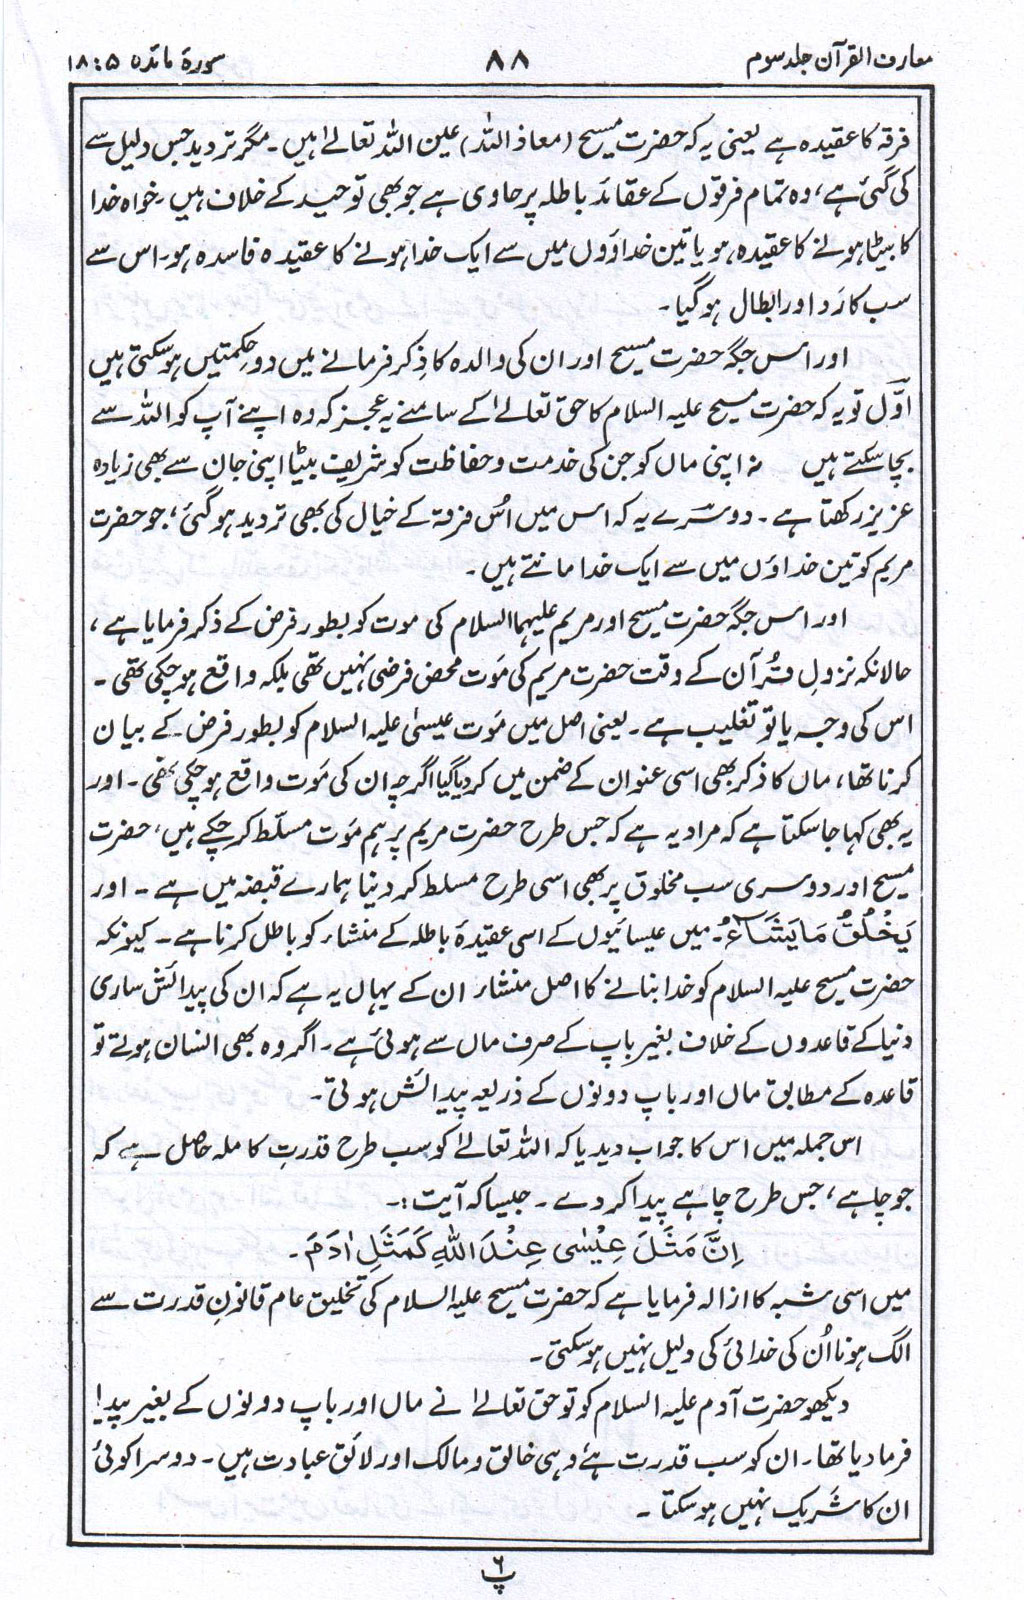 معارف القرآن جلد سوم ۸۸ سورۃ مائدہ ۵ : ۱۸
فرقہ کا عقیدہ ہے یعنی یہ کہ حضرت مسیح (معاذ اللہ) عین اللہ تعالےٰ ہیں۔ مگر تردید جس دلیل سے
کی گئی ہے، وہ تمام فرقوں کے عقائد باطلہ پر حاوی ہے جو بھی توحید کے خلاف ہیں۔ خواہ خدا
کا بیٹا ہونے کا عقیدہ ہو یا تین خداؤں میں سے ایک خدا ہونے کا عقیدہ فاسدہ ہو۔ اس سے
سب کا رَد اور ابطال ہو گیا۔
اور اس جگہ حضرت مسیح اور ان کی والدہ کا ذِکر فرمانے میں دو حکمتیں ہو سکتی ہیں
اوّل تو یہ کہ حضرت مسیح علیہ السلام کا حق تعالےٰ کے سامنے یہ عجز کہ وہ اپنے آپ کو اللہ سے
بچا سکتے ہیں نہ اپنی ماں کو جن کی خدمت و حفاظت کو شریف بیٹا اپنی جان سے بھی زیادہ
عزیز رکھتا ہے۔ دوسرے یہ کہ اس میں اُس فرقہ کے خیال کی بھی تردید ہو گئی، جو حضرت
مریم کو تین خداؤں میں سے ایک خدا مانتے ہیں۔
اور اس جگہ حضرت مسیح اور مریم علیہما السلام کی موت کو بطور فرض کے ذکر فرمایا ہے،
حالانکہ نزولِ قرآن کے وقت حضرت مریم کی مَوت محض فرضی نہیں تھی بلکہ واقع ہو چکی تھی۔
اس کی وجہ یا تو تغلیب ہے۔ یعنی اصل میں مَوت عیسیٰ علیہ السلام کو بطور فرض کے بیان
کرنا تھا، ماں کا ذکر بھی اسی عنوان کے ضمن میں کر دیا گیا اگرچہ ان کی مَوت واقع ہو چکی تھی۔ اور
یہ بھی کہا جا سکتا ہے کہ مراد یہ ہے کہ جس طرح حضرت مریم پر ہم مَوت مسلّط کر چکے ہیں، حضرت
مسیح اور دوسری سب مخلوق پر بھی اسی طرح مسلط کر دنیا ہمارے قبضہ میں ہے۔ اور
یَخْلُقُ مَا یَشَآءُ۔ میں عیسائیوں کے اسی عقیدۂ باطلہ کے منشاء کو باطل کرنا ہے۔ کیونکہ
حضرت مسیح علیہ السلام کو خدا بنانے کا اصل منشاء ان کے یہاں یہ ہے کہ ان کی پیدائش ساری
دنیا کے قاعدوں کے خلاف بغیر باپ کے صرف ماں سے ہوئی ہے۔ اگر وہ بھی انسان ہوتے تو
قاعدہ کے مطابق ماں اور باپ دونوں کے ذریعہ پیدائش ہوتی۔
اس جملہ میں اس کا جواب دیدیا کہ اللہ تعالےٰ کو سب طرح قدرتِ کاملہ حاصل ہے کہ
جو چاہے، جس طرح چاہے پیدا کر دے۔ جیسا کہ آیت :۔
اِنَّ مَثَلَ عِیْسٰی عِنْدَ اللّٰہِ کَمَثَلِ اٰدَمَ۔
میں اسی شبہ کا ازالہ فرمایا ہے کہ حضرت مسیح علیہ السلام کی تخلیق عام قانونِ قدرت سے
الگ ہونا اُن کی خدائی کی دلیل نہیں ہو سکتی۔
دیکھو حضرت آدم علیہ السلام کو تو حق تعالےٰ نے ماں اور باپ دونوں کے بغیر پیدا
فرما دیا تھا۔ ان کو سب قدرت ہے وہی خالق و مالک اور لائق عبادت ہیں۔ دوسرا کوئی
ان کا شریک نہیں ہو سکتا۔
پ ۶